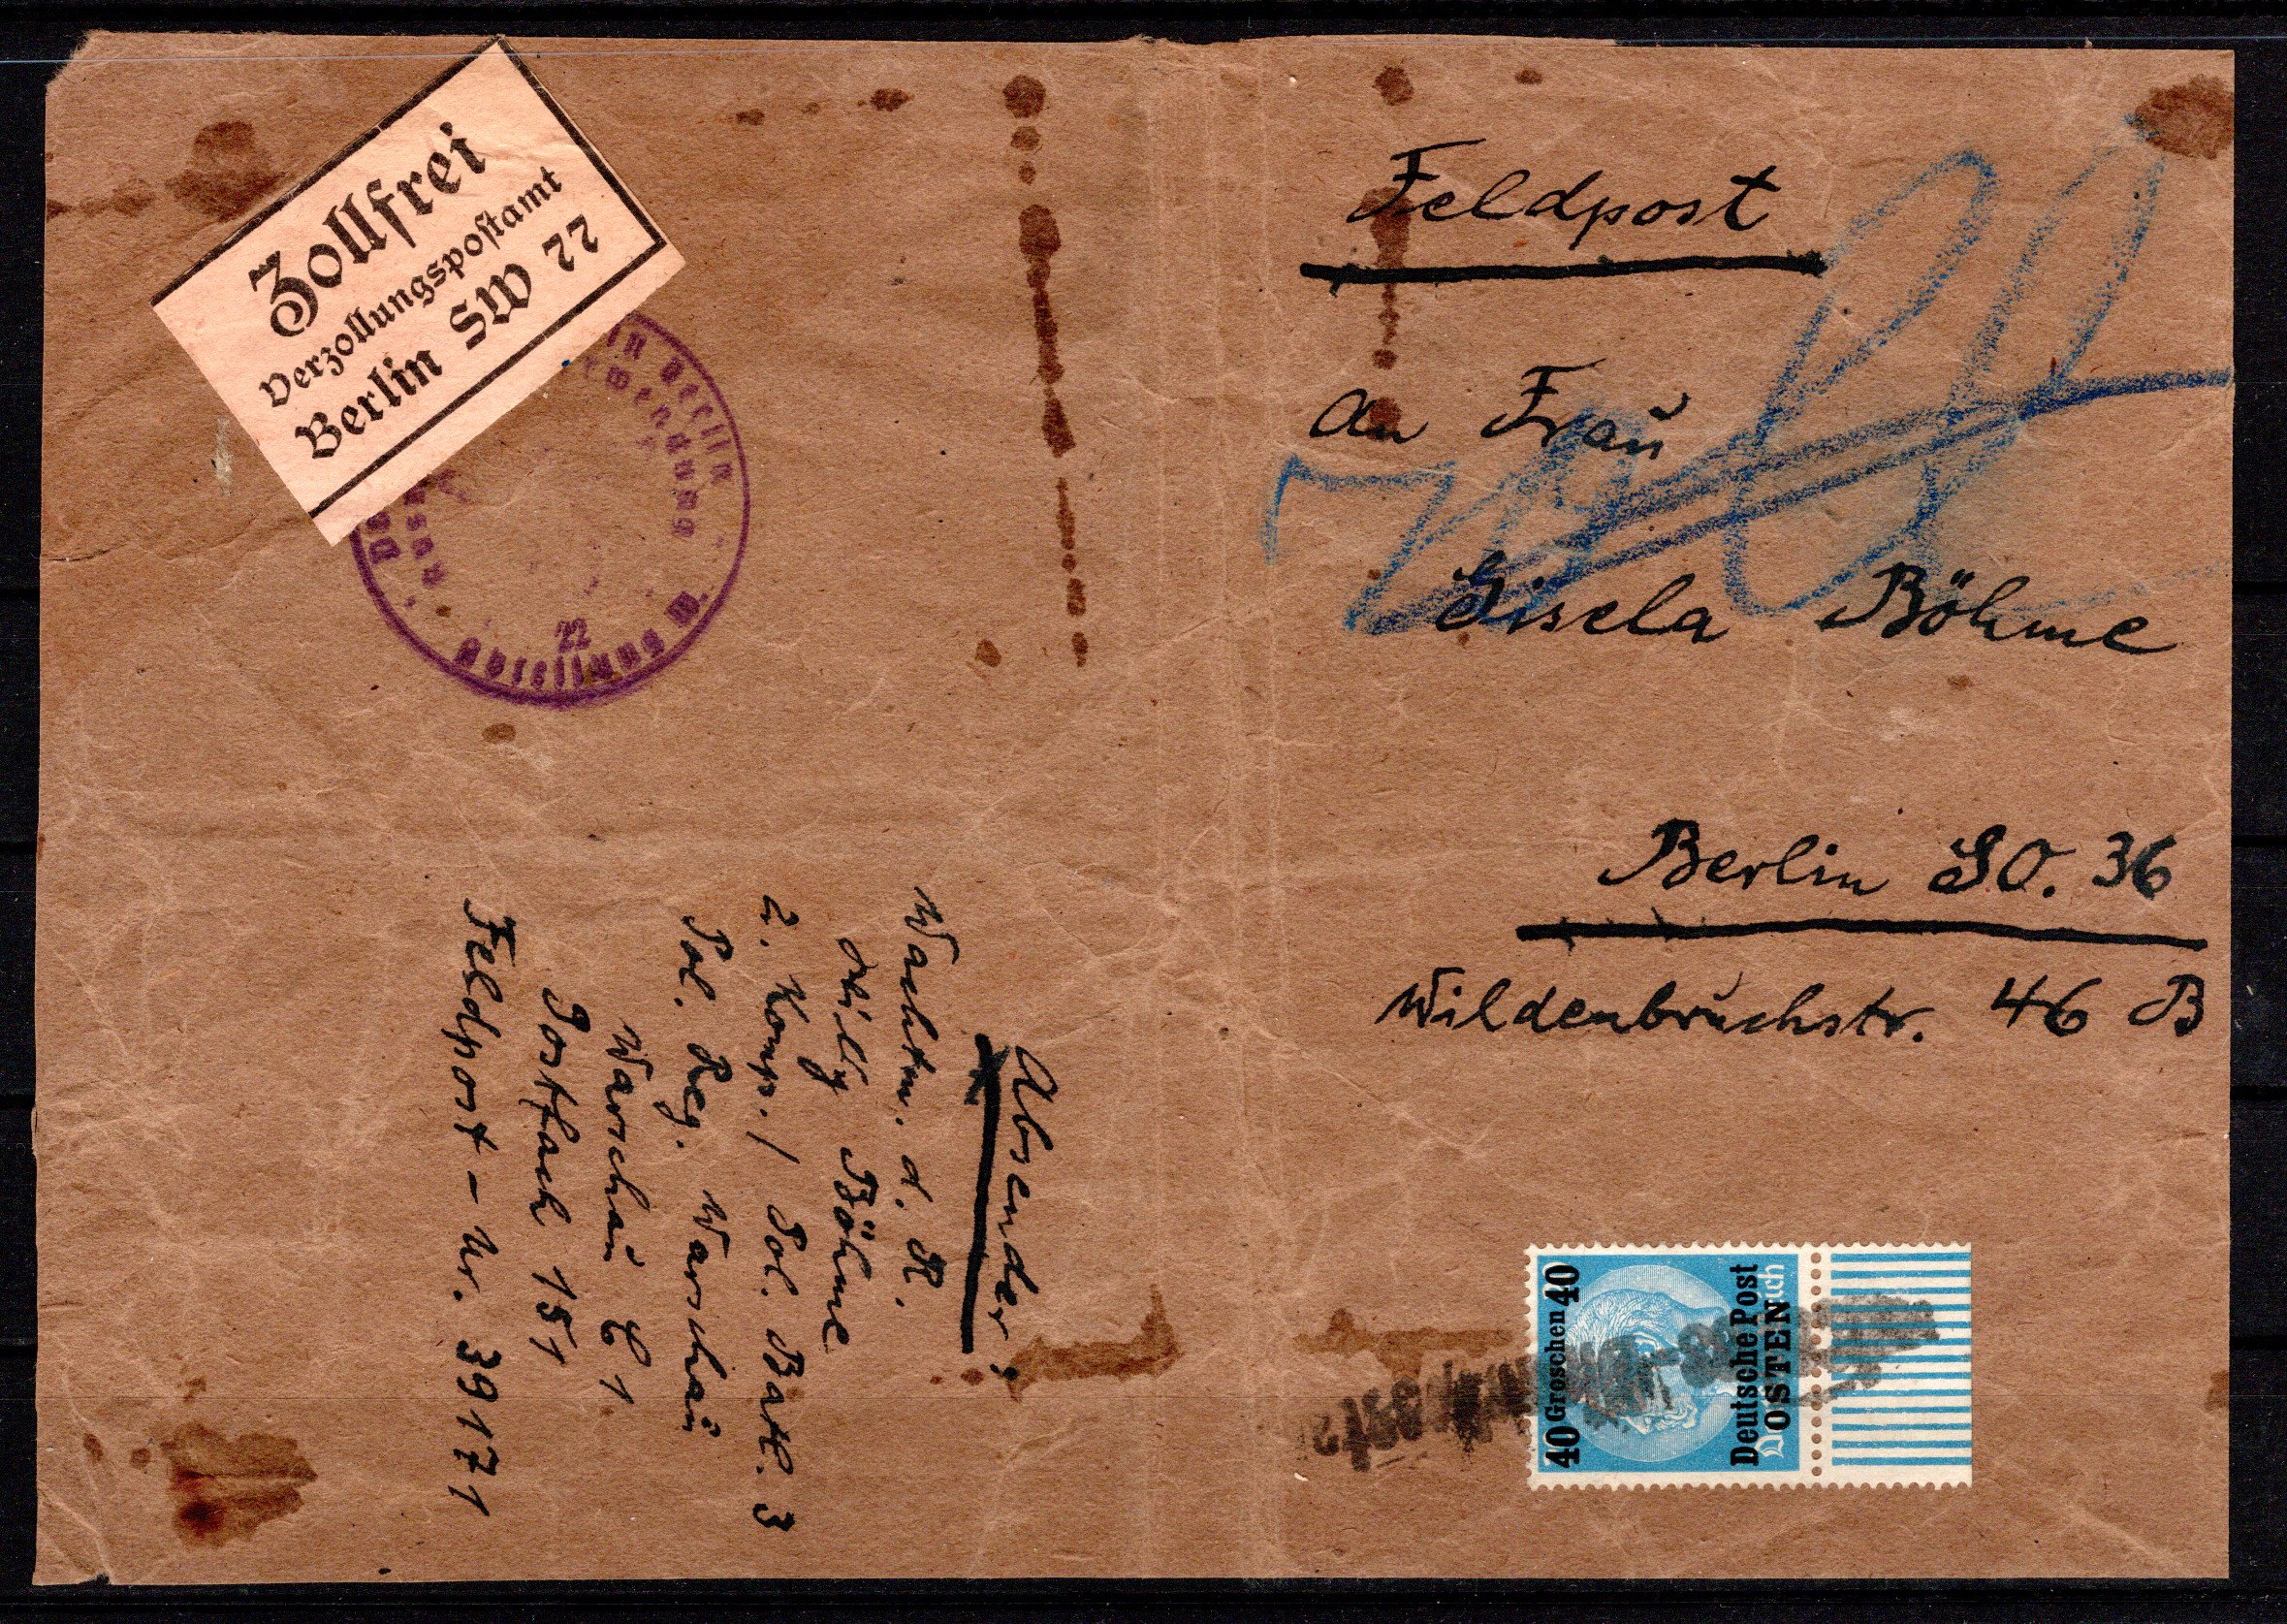 Zollfrei
Verzollungspostamt
Berlin SW 77
Abteilung W.
22
Feldpost
An Frau
Gisela Böhme
Berlin SO. 36
Wildenbruchstr. 46 B
Absender:
Wachtm. d. R.
Willy Böhme
2. Komp. / Pol. Batl. 3
Pol. Reg. Warschau
Warschau C 1
Postfach 151
Feldpost-Nr. 39171
40 Groschen 40
Deutsche Post
OSTEN